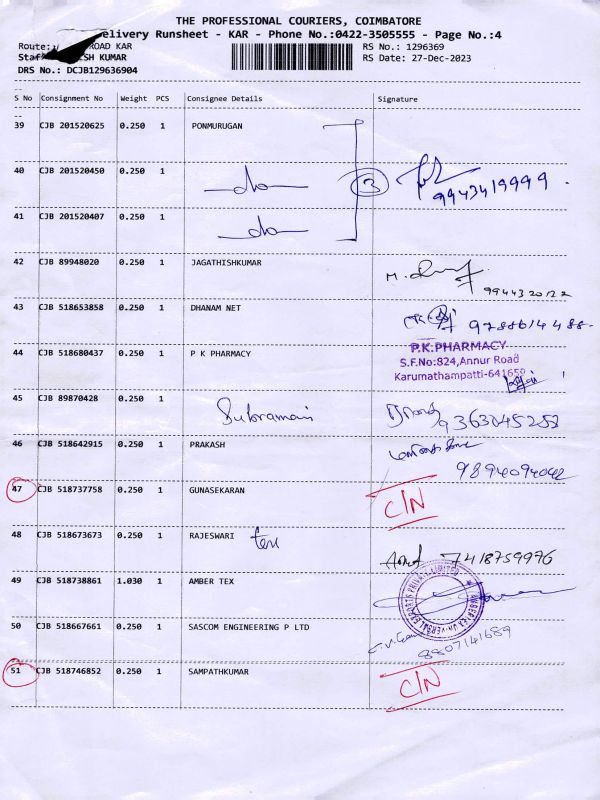 THE PROFESSIONAL COURIERS, COIMBATORE
elivery Runsheet - KAR - Phone No.:0422-3505555 - Page No.:4
Route: ROAD KAR RS No.: 1296369
Staf SH KUMAR RS Date: 27-Dec-2023
DRS No.: DCJB129636904
S No Consignment No Weight PCS Consignee Details Signature
39 CJB 201520625 0.250 1 PONMURUGAN
40 CJB 201520450 0.250 1 -do- 3 9943419999.
41 CJB 201520407 0.250 1 -do-
42 CJB 89948020 0.250 1 JAGATHISHKUMAR M. 9944320122
43 CJB 518653858 0.250 1 DHANAM NET 9788614488-
44 CJB 518680437 0.250 1 P K PHARMACY P.K.PHARMACY
S.F.No:824,Annur Road
Karumathampatti-641659
45 CJB 89870428 0.250 1 Subramani 9363045253
46 CJB 518642915 0.250 1 PRAKASH 9894094042
47 CJB 518737758 0.250 1 GUNASEKARAN C/N
48 CJB 518673673 0.250 1 RAJESWARI tex 7418759976
49 CJB 518738861 1.030 1 AMBER TEX
50 CJB 518667661 0.250 1 SASCOM ENGINEERING P LTD 8807141689
51 CJB 518746852 0.250 1 SAMPATHKUMAR C/N